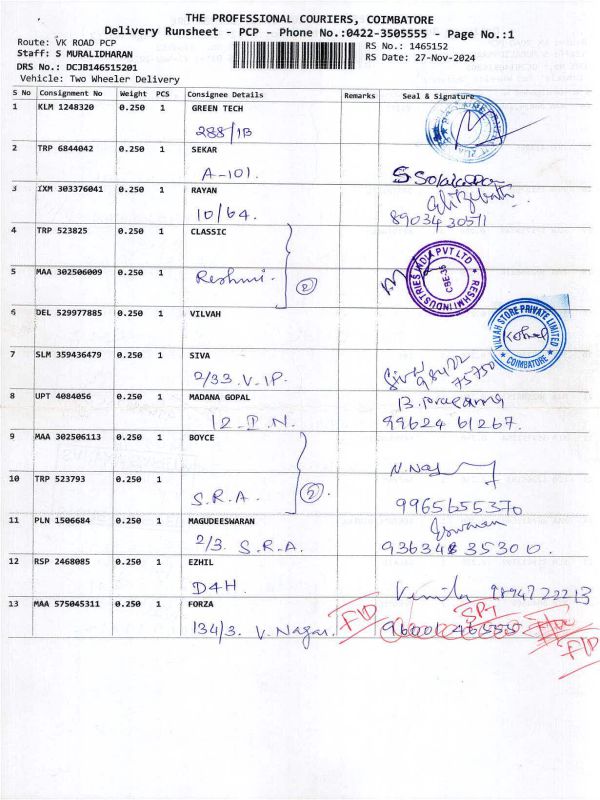 THE PROFESSIONAL COURIERS, COIMBATORE
Delivery Runsheet - PCP - Phone No.:0422-3505555 - Page No.:1
Route: VK ROAD PCP
RS No.: 1465152
Staff: S MURALIDHARAN
RS Date: 27-Nov-2024
DRS No.: DCJB146515201
Vehicle: Two Wheeler Delivery
S No Consignment No Weight PCS Consignee Details Remarks Seal & Signature
1 KLM 1248320 0.250 1 GREEN TECH
288/1B
2 TRP 6844042 0.250 1 SEKAR
A-101.
3 IXM 303376041 0.250 1 RAYAN
10/64. 8903430511
4 TRP 523825 0.250 1 CLASSIC
RESHMI INDUSTRIES INDIA PVT LTD
CBE-35
5 MAA 302506009 0.250 1 Reshmi. 2
6 DEL 529977885 0.250 1 VILVAH
VILVAH STORE PRIVATE LIMITED
COIMBATORE
7 SLM 359436479 0.250 1 SIVA
2/33. V.IP. Siva 98422
75750
8 UPT 4084056 0.250 1 MADANA GOPAL
12. I. N. 99624 61267.
9 MAA 302506113 0.250 1 BOYCE
10 TRP 523793 0.250 1 2
S.R.A. 9965655370
11 PLN 1506684 0.250 1 MAGUDEESWARAN Eswaran
2/3. S.R.A. 93634835300.
12 RSP 2468085 0.250 1 EZHIL
D4H.
13 MAA 575045311 0.250 1 FORZA
134/3. V. Nagar. F/D
F/D